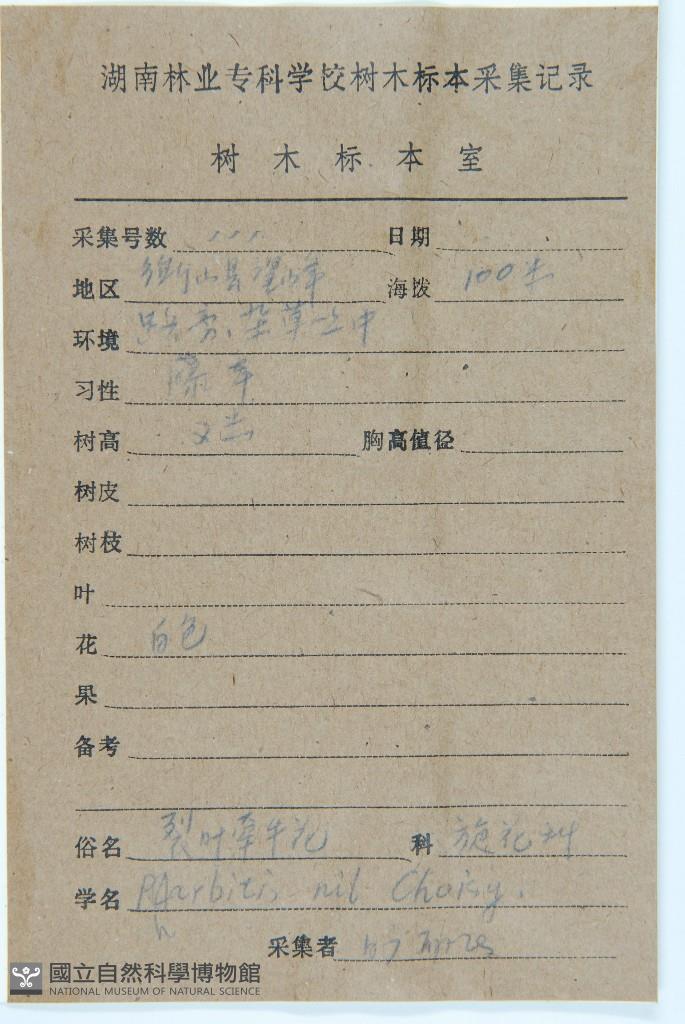 湖南林业专科学校树木标本采集记录
树木标本室
采集号数 日期
地区 衡山县 海拨 100米
环境 杂草丛中
习性 藤本
树高 胸高值径
树皮
树枝
叶
花 白色
果
备考
俗名 裂叶牵牛花 科 旋花科
学名 Pharbitis nil Choisy.
采集者
國立自然科學博物館
NATIONAL MUSEUM OF NATURAL SCIENCE